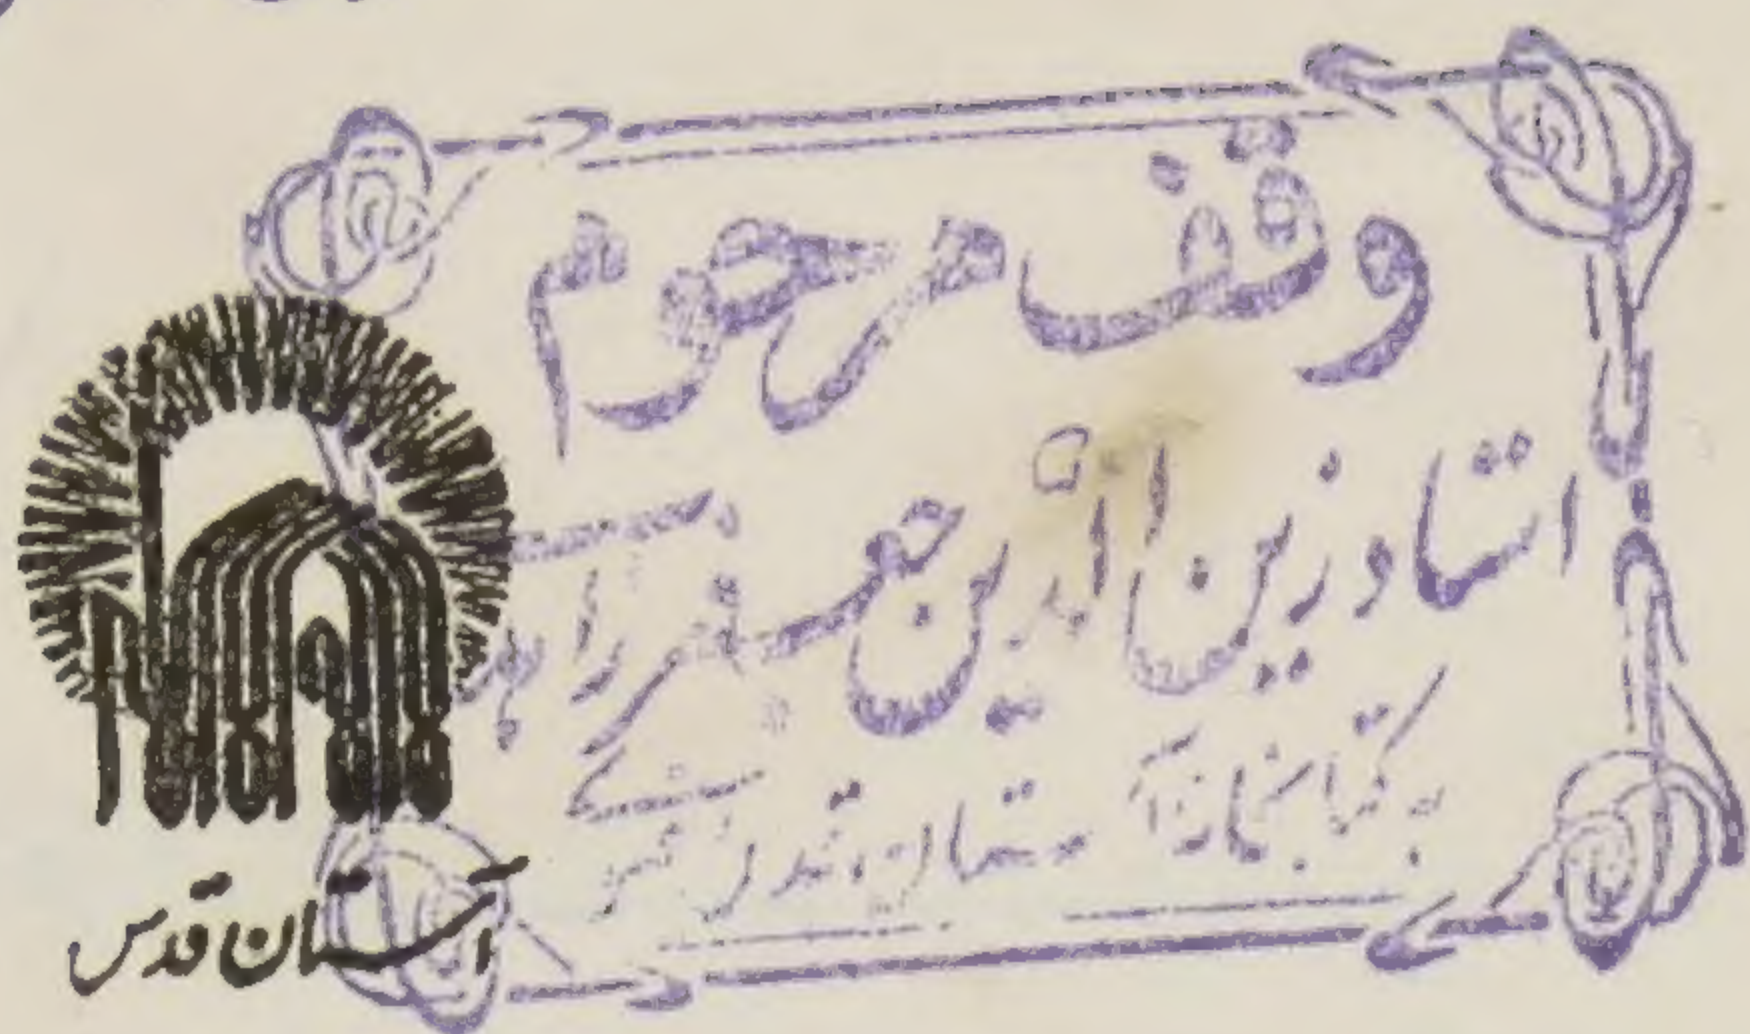 وقف مرحوم
استاد زین الدین جعفر زاهدی
به کتابخانه آستان قدس
آستان قدس